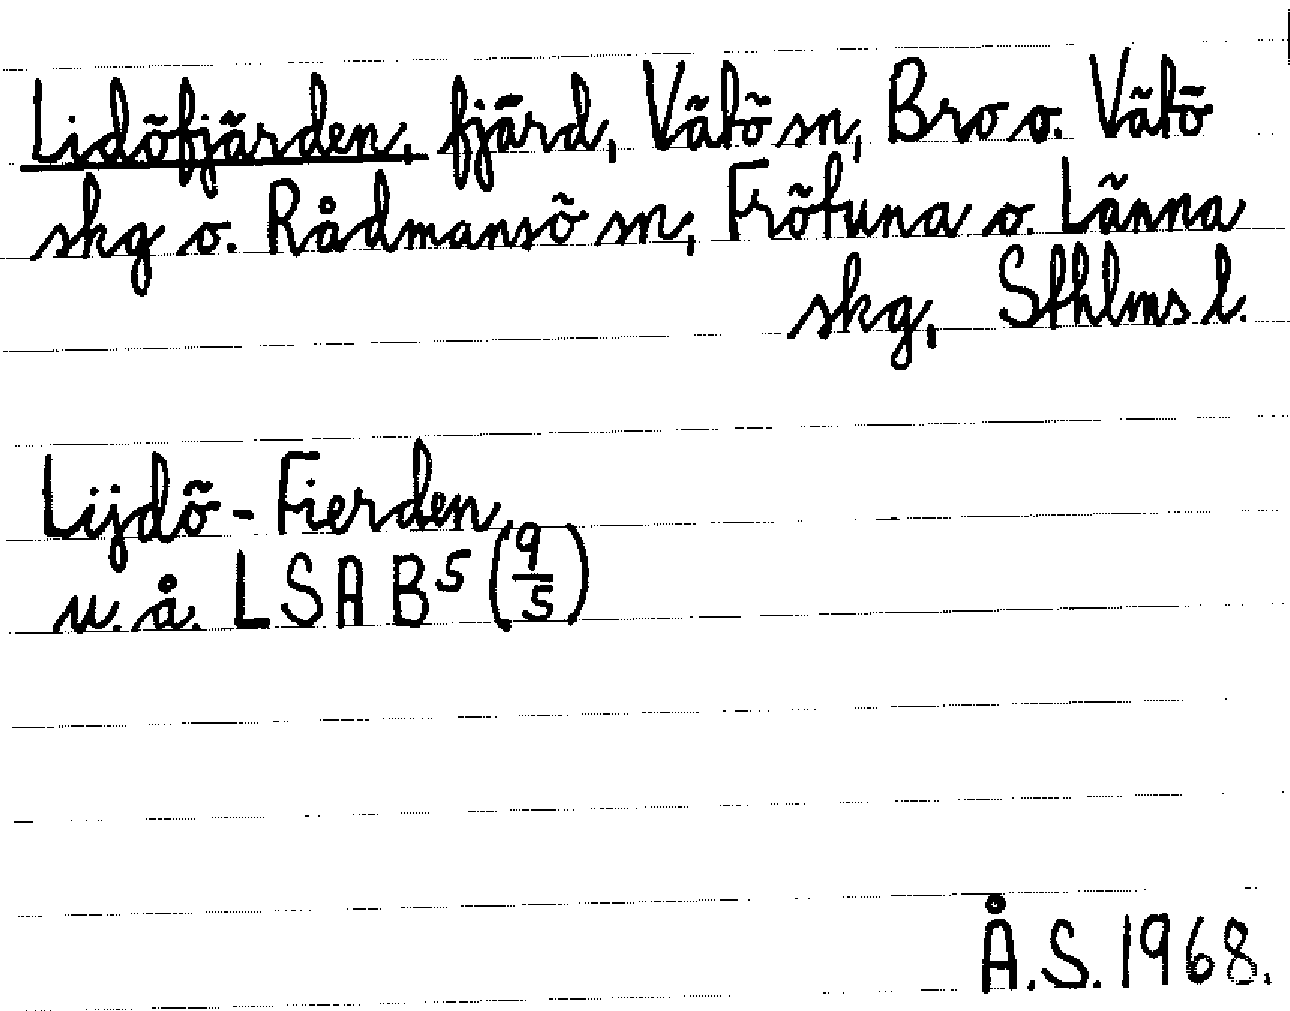 Lidöfjärden, fjärd, Vätö sn, Bro o. Vätö
skg o. Rådmansö sn, Frötuna o. Länna
skg, Sthlms l.
Lijdö-Fierden
u.å. LSA B⁵ (9/5)
Å.S. 1968.